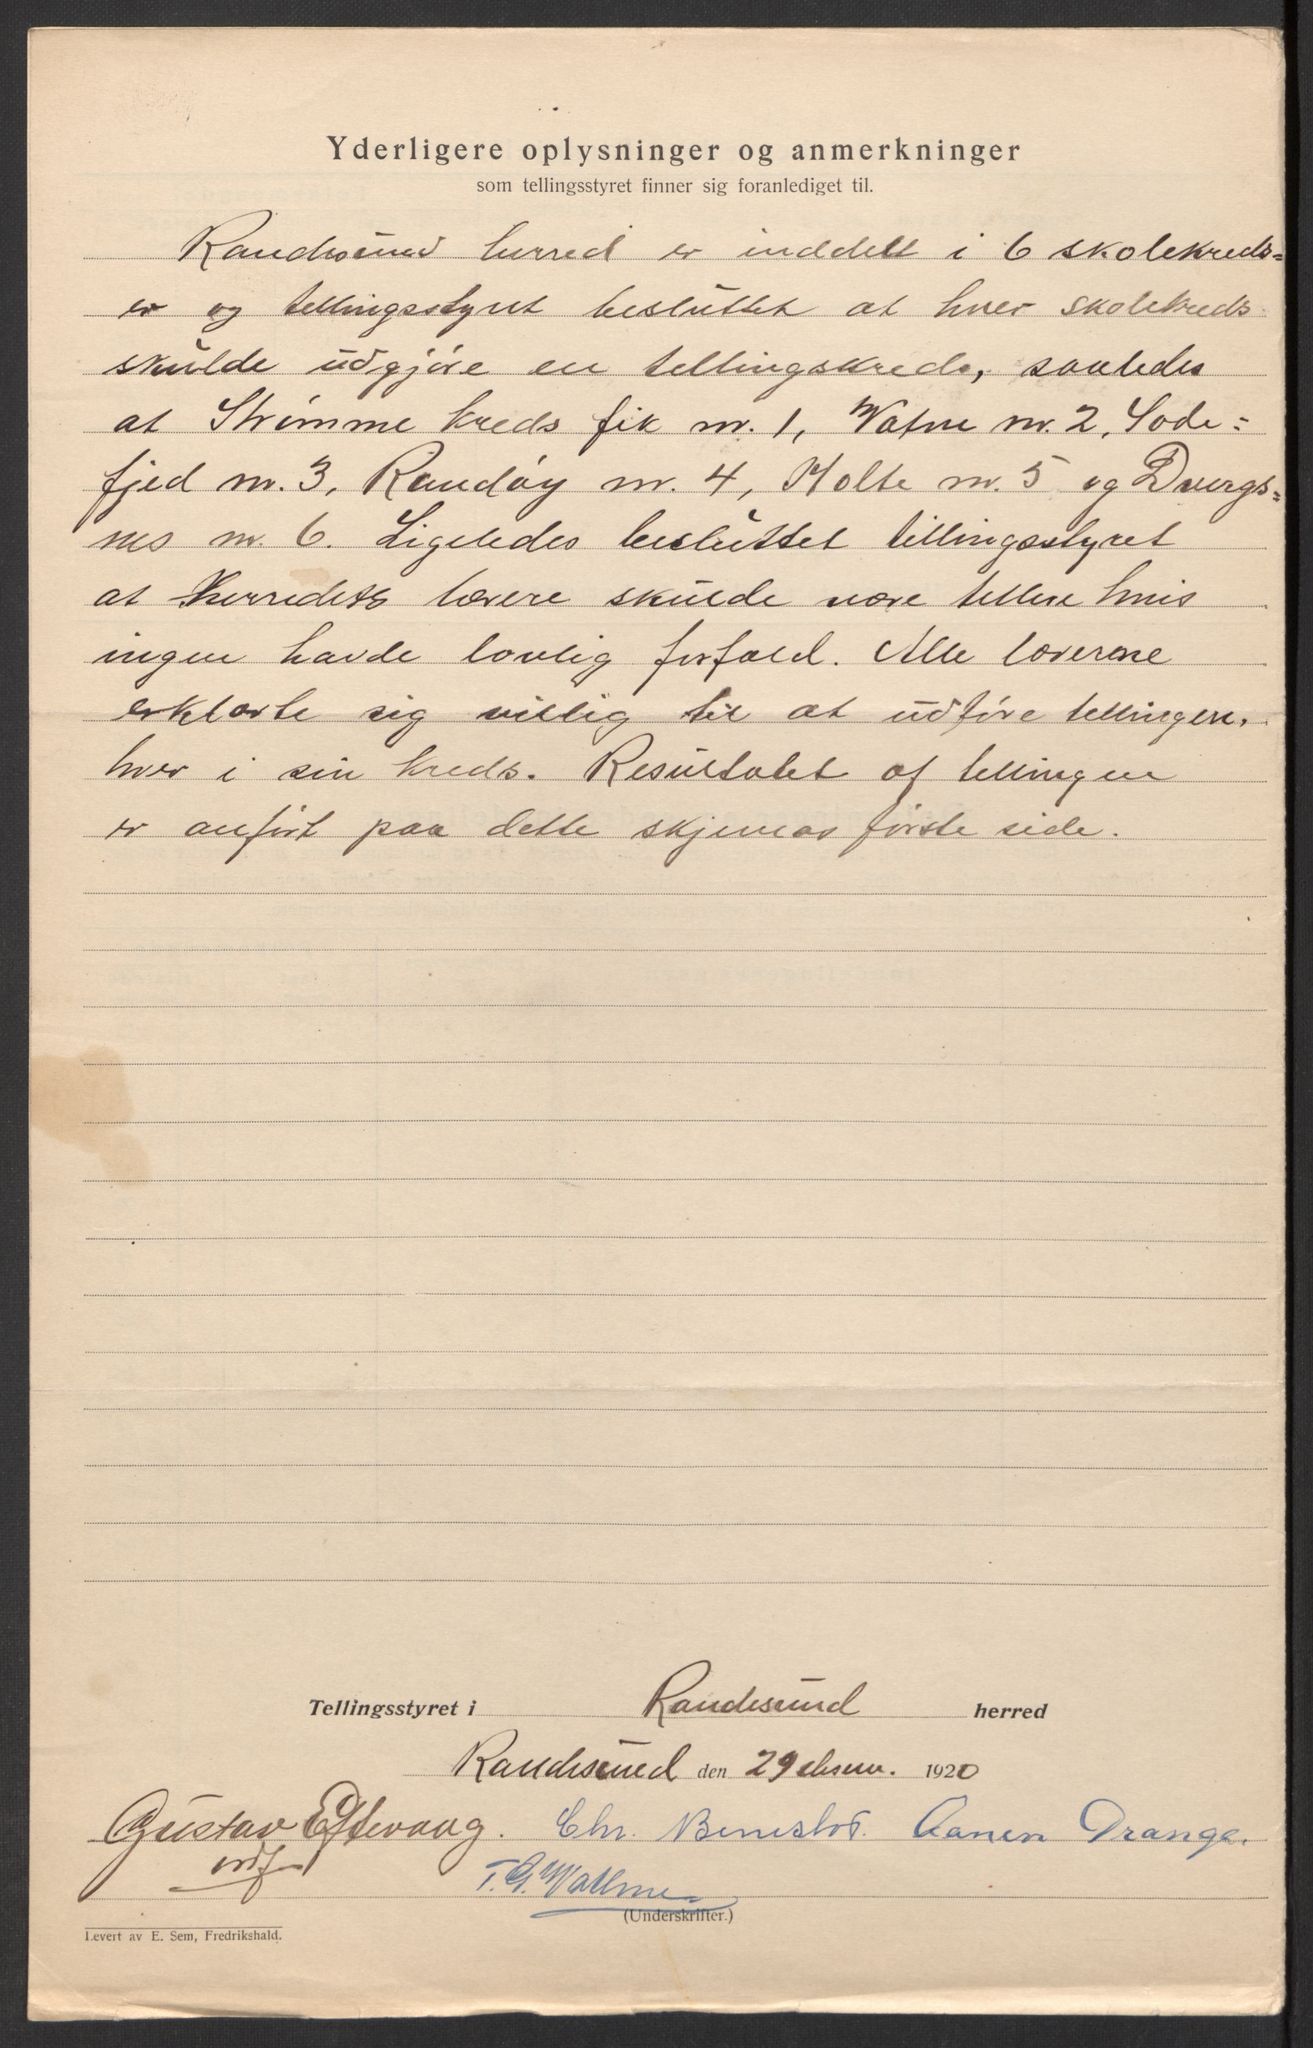 Yderligere oplysninger og anmerkninger
som tellingsstyret finner sig foranlediget til.
Randesund herred er inddelt i 6 skolekreds=
er og tellingsstyret besluttet at hver skolekreds
skulde udgjøre en tellingskreds, saaledes
at Strømme kreds fik nr. 1, Vatne nr. 2, Sode=
fjed nr. 3, Randøy nr. 4, Holte nr. 5 og Dvergs=
nes nr. 6. Ligeledes besluttet tellingsstyret
at herredets lærere skulde være tellere hvis
ingen havde lovlig forfald. Alle lærerne
erklærte sig villig til at udføre tellingen,
hver i sin kreds. Resultatet af tellingen
er anført paa dette skjemas første side.
Tellingsstyret i Randesund herred
Randesund den 29 1920
Gustav Eftevaag. Chr. Benestvt. Aanen Drange.
ordf
T. G. Wathne
(Underskrifter.)
Levert av E. Sem, Fredrikshald.